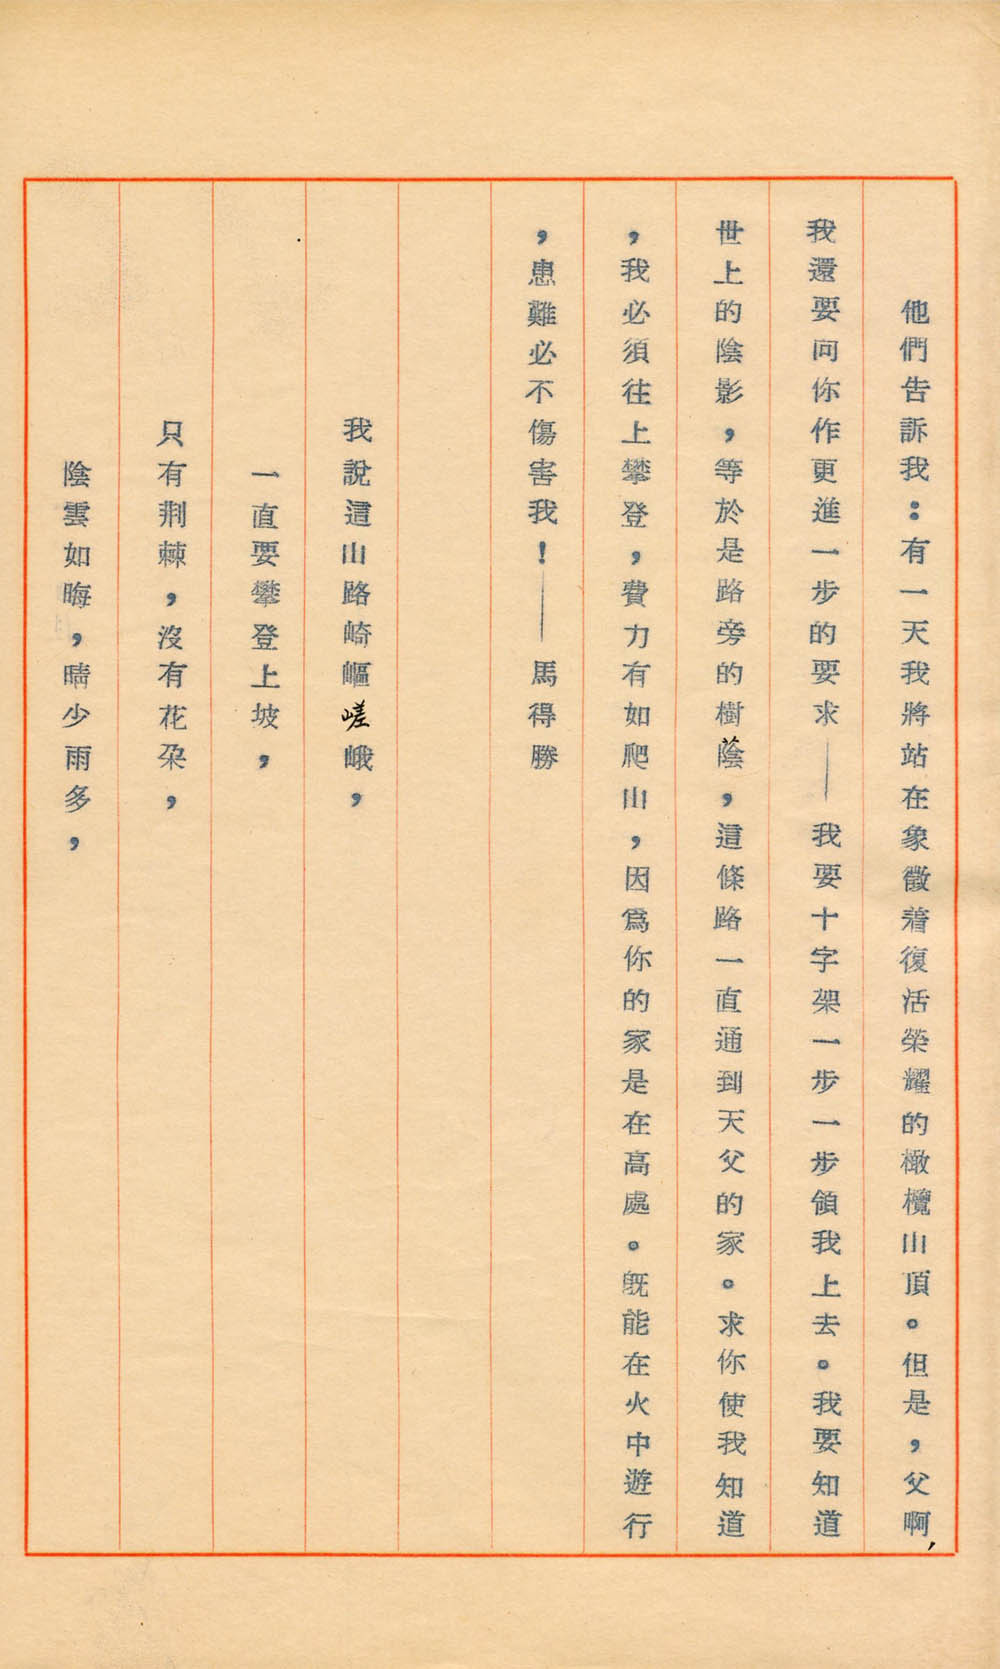 他們告訴我：有一天我將站在象徵着復活榮耀的橄欖山頂。但是，父啊，
我還要向你作更進一步的要求——我要十字架一步一步領我上去。我要知道
世上的陰影，等於是路旁的樹蔭，這條路一直通到天父的家。求你使我知道
，我必須往上攀登，費力有如爬山，因爲你的家是在高處。既能在火中遊行
，患難必不傷害我！——馬得勝
我說這山路崎嶇嵯峨，
一直要攀登上坡，
只有荆棘，沒有花朶，
陰雲如晦，晴少雨多，